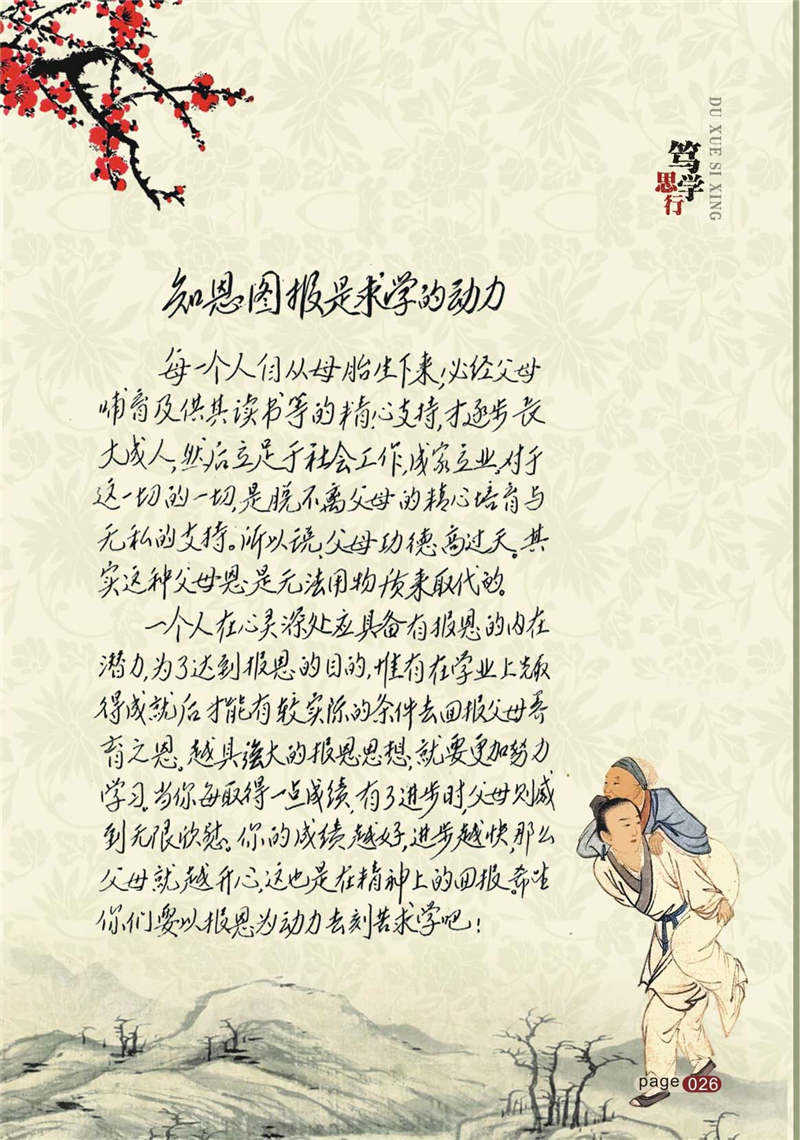 DU XUE SI XING
笃学
思行
知恩图报是求学的动力
每一个人自从母胎生下来,必经父母
哺育及供其读书等的精心支持,才逐步长
大成人,然后立足于社会工作,成家立业,对于
这一切的一切,是脱不离父母的精心培育与
无私的支持。所以说,父母功德高过天。其
实这种父母恩是无法用物质来取代的。
一个人在心灵深处应具备有报恩的内在
潜力,为了达到报恩的目的,惟有在学业上先取
得成就后才能有较实际的条件去回报父母养
育之恩。越具强大的报恩思想,就要更加努力
学习。当你每取得一点成绩,有了进步时,父母则感
到无限欣慰。你的成绩越好,进步越快,那么
父母就越开心,这也是在精神上的回报。希望
你们要以报恩为动力去刻苦求学吧!
page 026